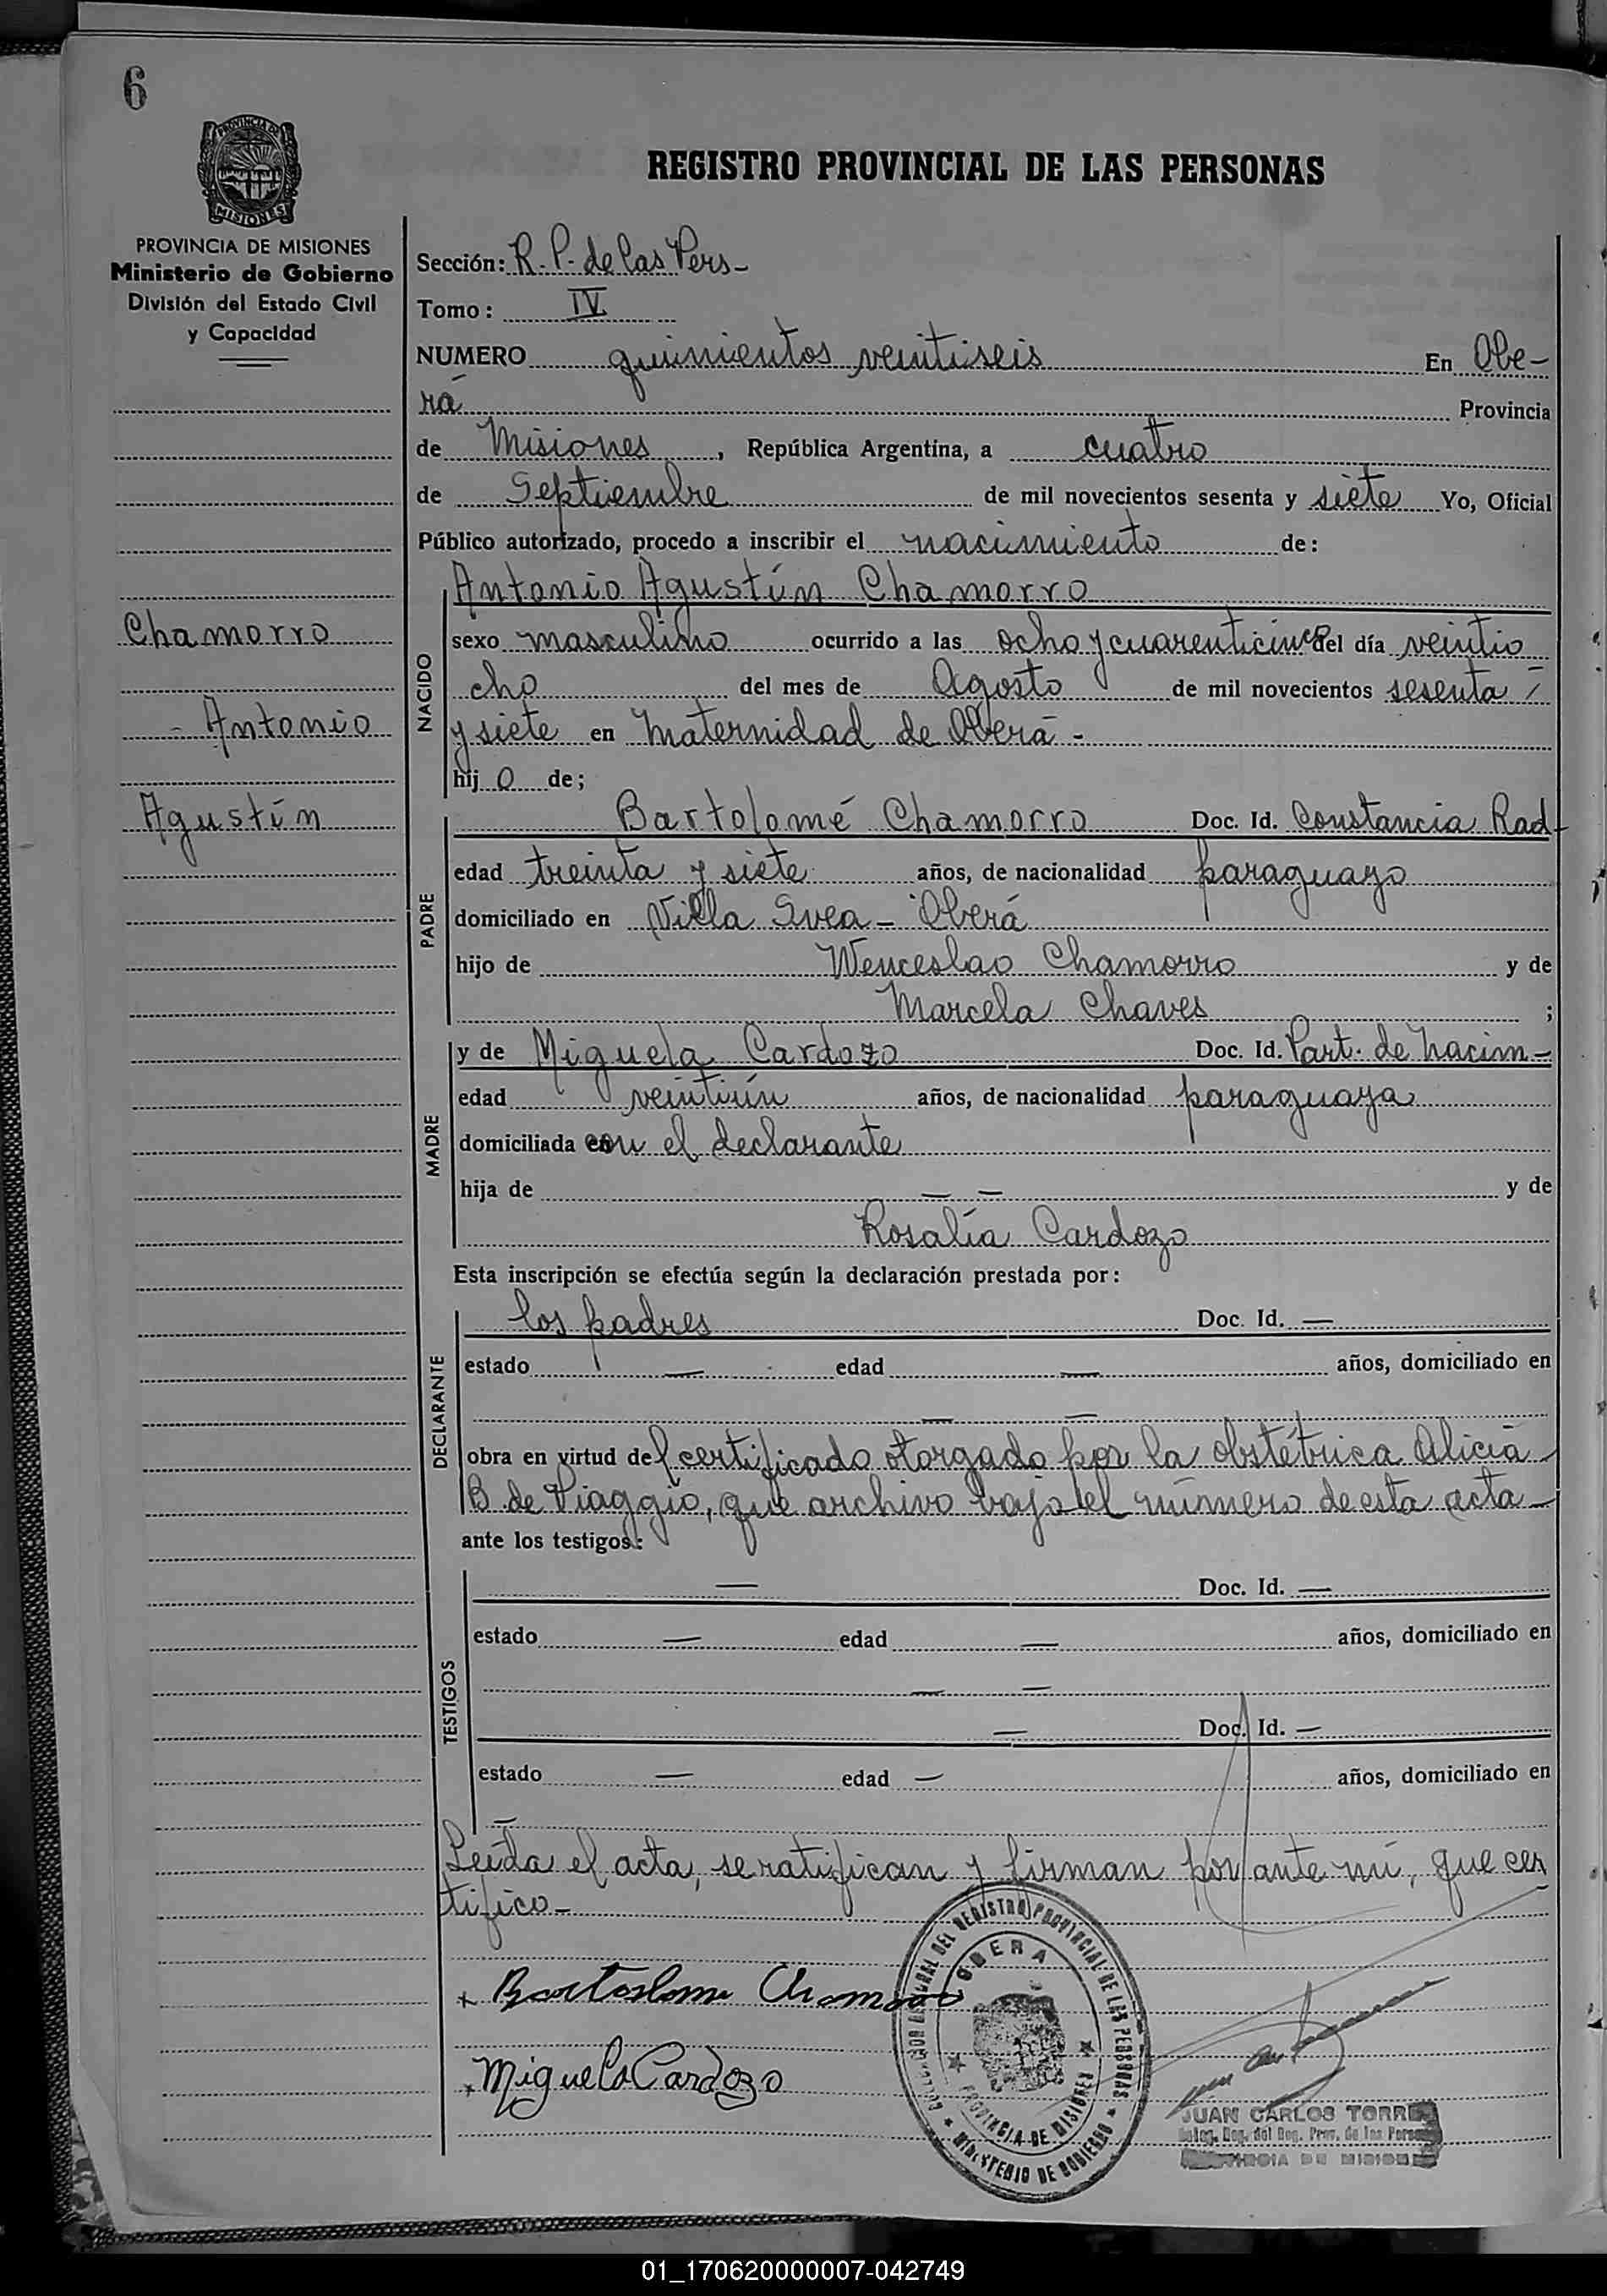 6
PROVINCIA DE
MISIONES
REGISTRO PROVINCIAL DE LAS PERSONAS
PROVINCIA DE MISIONES
Ministerio de Gobierno
División del Estado Civil
y Capacidad
Sección: R. P. de las Pers-
Tomo: IV
NUMERO quinientos veintiseis En Obe-
rá Provincia
de Misiones, República Argentina, a cuatro
de Septiembre de mil novecientos sesenta y siete Yo, Oficial
Público autorizado, procedo a inscribir el nacimiento de:
Chamorro
- Antonio
Agustín
NACIDO
Antonio Agustín Chamorro
sexo masculino ocurrido a las ocho y cuarenticinco del día veintio
cho del mes de Agosto de mil novecientos sesenta -
y siete en Maternidad de Oberá -
hij o de;
PADRE
Bartolomé Chamorro Doc. Id. Constancia Rad-
edad treinta y siete años, de nacionalidad paraguayo
domiciliado en Villa Svea - Oberá
hijo de Wenceslao Chamorro y de
Marcela Chaves ;
MADRE
y de Miguela Cardozo Doc. Id. Part. de nacim-
edad veintiún años, de nacionalidad paraguaya
domiciliada con el declarante
hija de — — y de
Rosalía Cardozo
Esta inscripción se efectúa según la declaración prestada por:
DECLARANTE
los padres Doc. Id. —
estado — edad — años, domiciliado en
— —
obra en virtud del certificado otorgado por la obstétrica Alicia
B. de Viaggio, que archivo bajo el número de esta acta -
ante los testigos:
TESTIGOS
— Doc. Id. —
estado — edad — años, domiciliado en
— —
— Doc. Id. —
estado — edad — años, domiciliado en
—
Leída el acta, se ratifican y firman por ante mí, que cer
tifico -
DEL REGISTRO PROVINCIAL DE LAS PERSONAS
OBERA
PROVINCIA DE MISIONES
MINISTERIO DE GOBIERNO
+ Bartolome Chamorro
+ Miguela Cardozo
JUAN CARLOS TORRES
Deleg. Reg. del Reg. Prov. de las Personas
PROVINCIA DE MISIONES
01_170620000007-042749